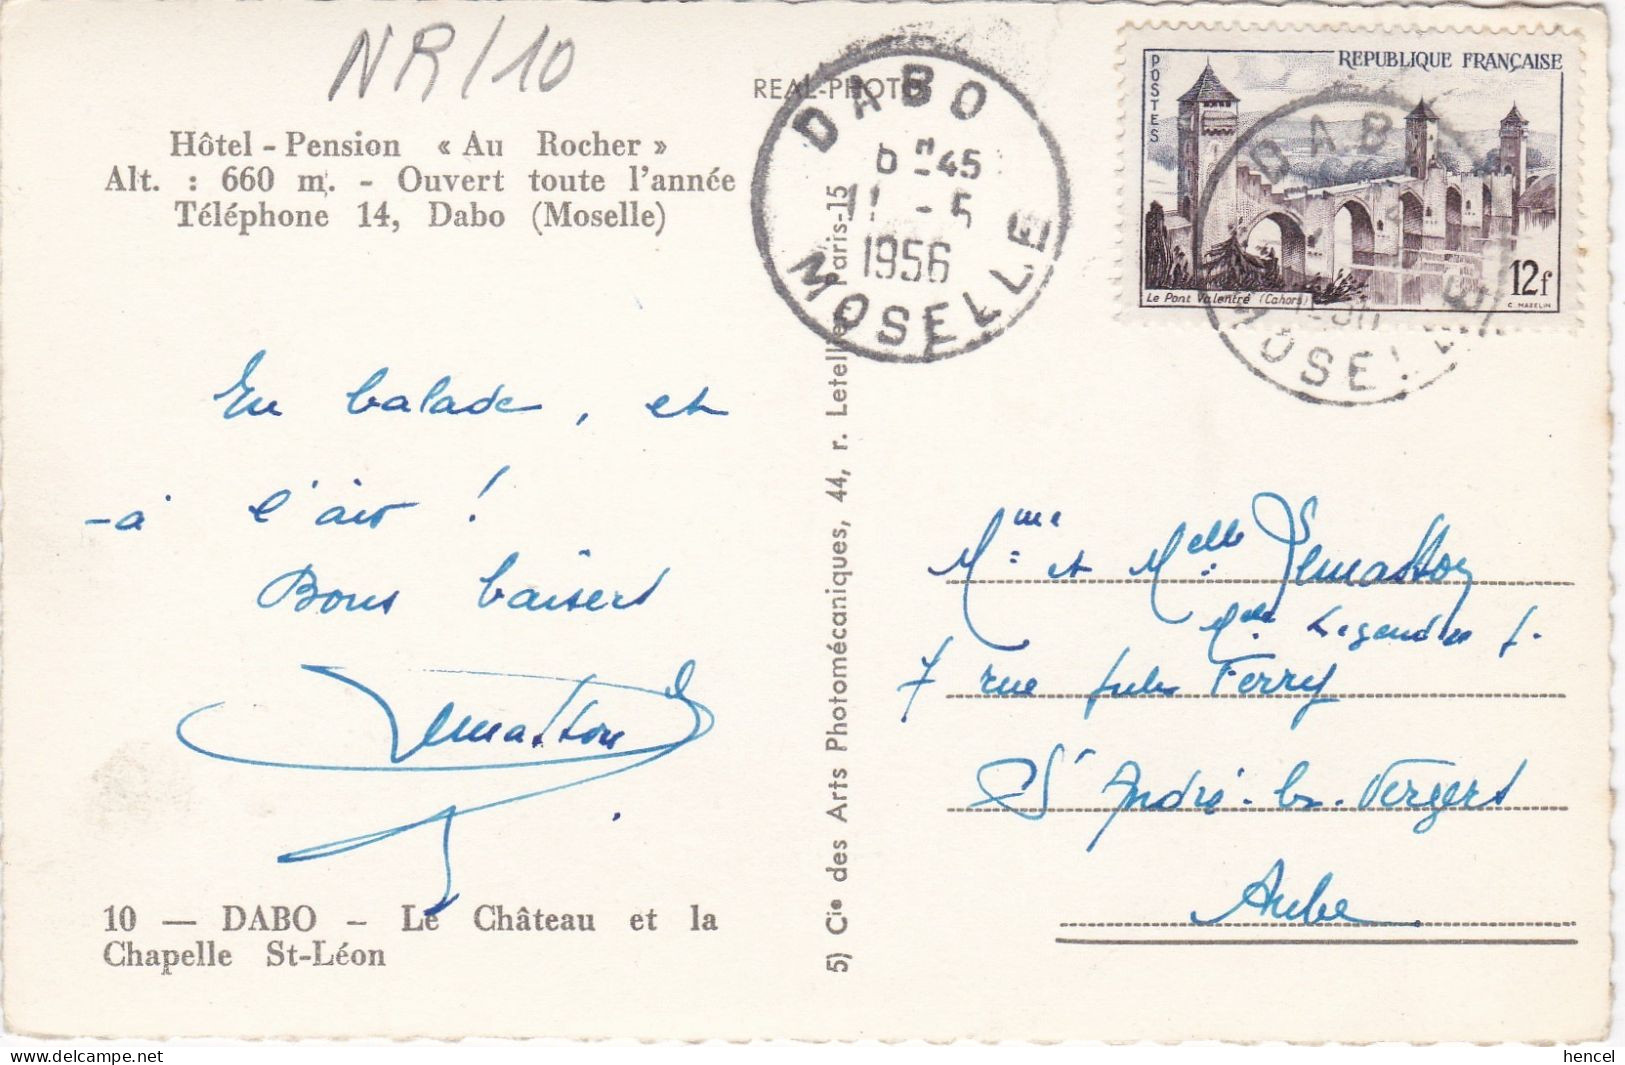 NR/10
REAL-PHOTO
Hôtel - Pension « Au Rocher »
Alt. : 660 m. - Ouvert toute l'année
Téléphone 14, Dabo (Moselle)
DABO
6 H 45
11 - 5
1956
MOSELLE
POSTES
REPUBLIQUE FRANÇAISE
Le Pont Valentré (Cahors)
12f
C. MAZELIN
DAB
MOSELLE
En balade, et
-à l'air !
Bons baisers
10 — DABO - Le Château et la
Chapelle St-Léon
5) Cie des Arts Photomécaniques, 44, r. Letellier Paris-15
Mme et Melle
7 rue Jules Ferry
St André-les-Vergers
Aube
hencel